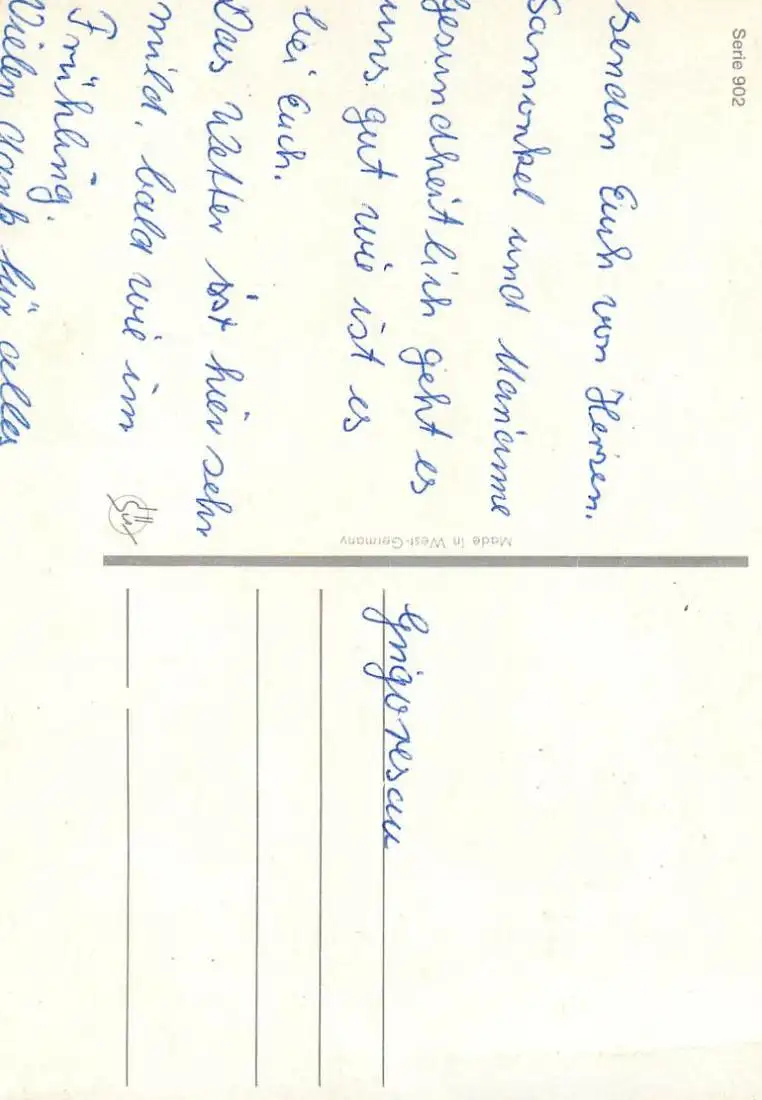 Serie 902
senden Euch von Herzen.
Samuckel und Marianne
gesundheitlich geht es
uns gut wie ist es
bei Euch.
Das Wetter ist hier sehr
mild, bald wie im
Frühling.
Vielen Dank für alles
Made in West-Germany
Grigorescu